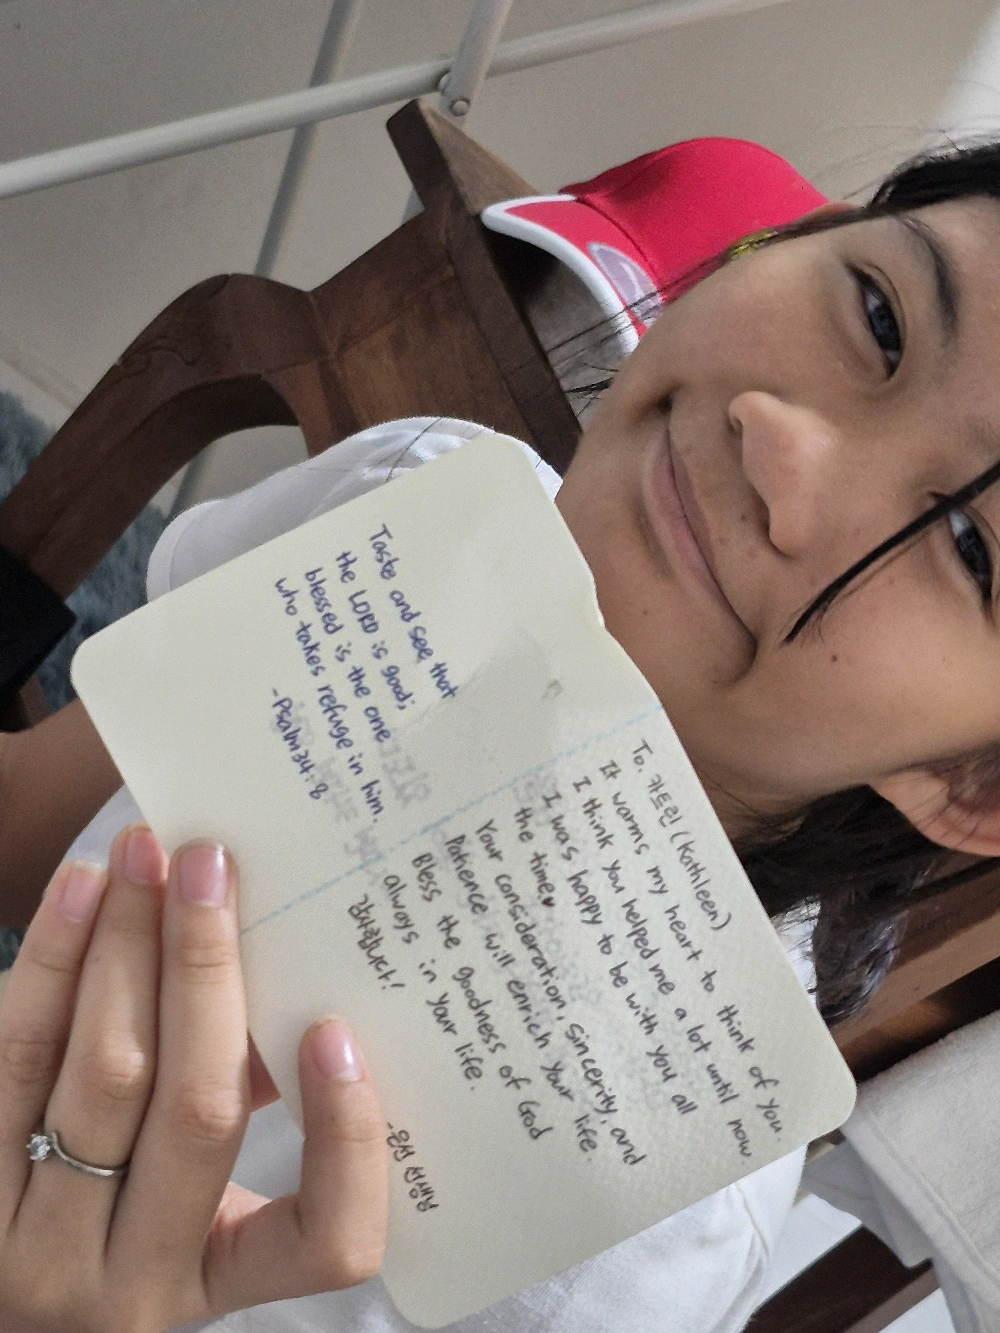 Taste and see that
the LORD is good;
blessed is the one
who takes refuge in him.
-Psalm 34:8
To. 캐트린 (Kathleen)
It warms my heart to think of you.
I think you helped me a lot until now.
I was happy to be with you all
the time♥
Your consideration, sincerity, and
Patience will enrich your life.
Bless the goodness of God
always in your life.
감사합니다!